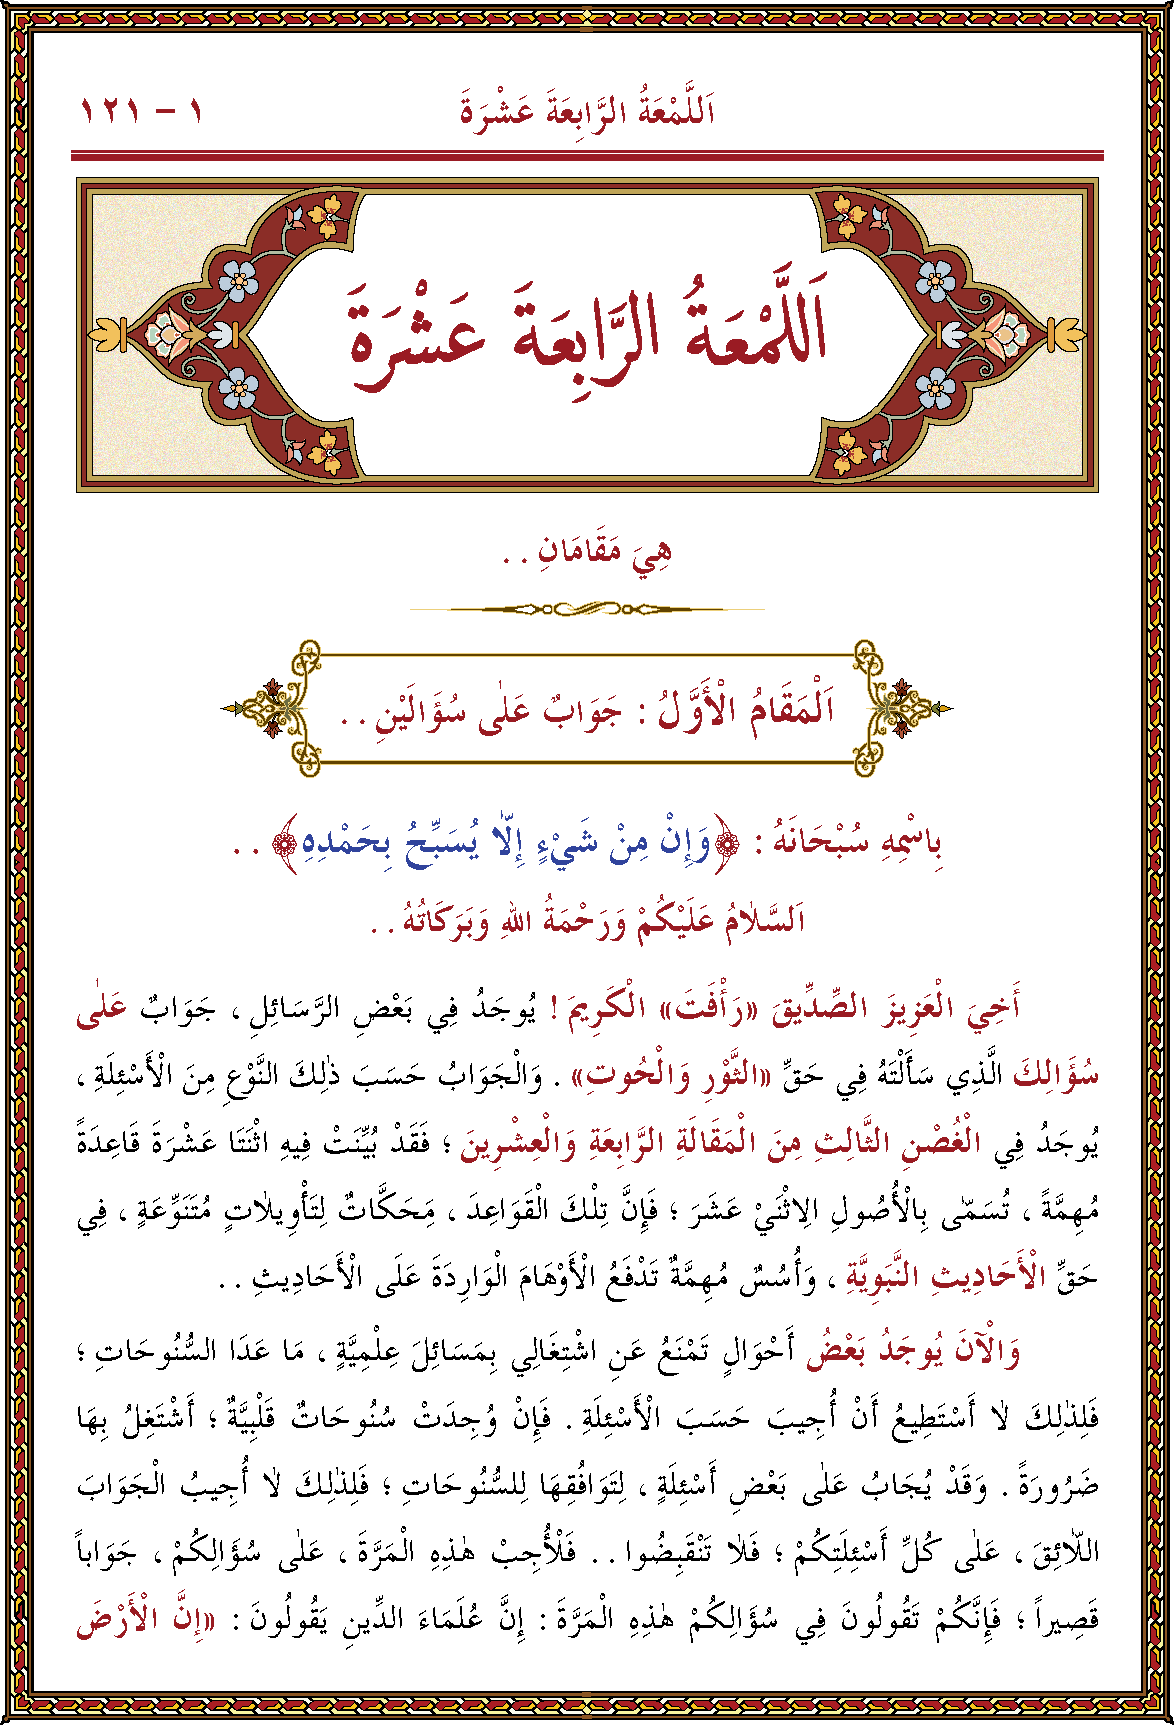 اَللَّمْعَةُ الرَّابِعَةَ عَشْرَةَ
١ - ١٢١
اَللَّمْعَةُ الرَّابِعَةَ عَشْرَةَ
هِيَ مَقَامَانِ . .
اَلْمَقَامُ الْأَوَّلُ : جَوَابٌ عَلٰى سُؤَالَيْنِ . .
بِاسْمِهِ سُبْحَانَهُ : ﴿وَإِنْ مِنْ شَيْءٍ إِلَّا يُسَبِّحُ بِحَمْدِهِ﴾ . .
اَلسَّلَامُ عَلَيْكُمْ وَرَحْمَةُ اللهِ وَبَرَكَاتُهُ . .
أَخِيَ الْعَزِيزَ الصِّدِّيقَ «رَأْفَتَ» الْكَرِيمَ ! يُوجَدُ فِي بَعْضِ الرَّسَائِلِ ، جَوَابٌ عَلٰى
سُؤَالِكَ الَّذِي سَأَلْتَهُ فِي حَقِّ «الثَّوْرِ وَالْحُوتِ» . وَالْجَوَابُ حَسَبَ ذٰلِكَ النَّوْعِ مِنَ الْأَسْئِلَةِ ،
يُوجَدُ فِي الْغُصْنِ الثَّالِثِ مِنَ الْمَقَالَةِ الرَّابِعَةِ وَالْعِشْرِينَ ؛ فَقَدْ بُيِّنَتْ فِيهِ اثْنَتَا عَشْرَةَ قَاعِدَةً
مُهِمَّةً ، تُسَمّٰى بِالْأُصُولِ الِاثْنَيْ عَشَرَ ؛ فَإِنَّ تِلْكَ الْقَوَاعِدَ ، مِحَكَّاتٌ لِتَأْوِيلَاتٍ مُتَنَوِّعَةٍ ، فِي
حَقِّ الْأَحَادِيثِ النَّبَوِيَّةِ ، وَأُسُسٌ مُهِمَّةٌ تَدْفَعُ الْأَوْهَامَ الْوَارِدَةَ عَلَى الْأَحَادِيثِ . .
وَالْآنَ يُوجَدُ بَعْضُ أَحْوَالٍ تَمْنَعُ عَنِ اشْتِغَالِي بِمَسَائِلَ عِلْمِيَّةٍ ، مَا عَدَا السُّنُوحَاتِ ؛
فَلِذٰلِكَ لَا أَسْتَطِيعُ أَنْ أُجِيبَ حَسَبَ الْأَسْئِلَةِ . فَإِنْ وُجِدَتْ سُنُوحَاتٌ قَلْبِيَّةٌ ؛ أَشْتَغِلُ بِهَا
ضَرُورَةً . وَقَدْ يُجَابُ عَلٰى بَعْضِ أَسْئِلَةٍ ، لِتَوَافُقِهَا لِلسُّنُوحَاتِ ؛ فَلِذٰلِكَ لَا أُجِيبُ الْجَوَابَ
اللَّائِقَ ، عَلٰى كُلِّ أَسْئِلَتِكُمْ ؛ فَلَا تَنْقَبِضُوا . . فَلْأُجِبْ هٰذِهِ الْمَرَّةَ ، عَلٰى سُؤَالِكُمْ ، جَوَاباً
قَصِيراً ؛ فَإِنَّكُمْ تَقُولُونَ فِي سُؤَالِكُمْ هٰذِهِ الْمَرَّةَ : إِنَّ عُلَمَاءَ الدِّينِ يَقُولُونَ : «إِنَّ الْأَرْضَ